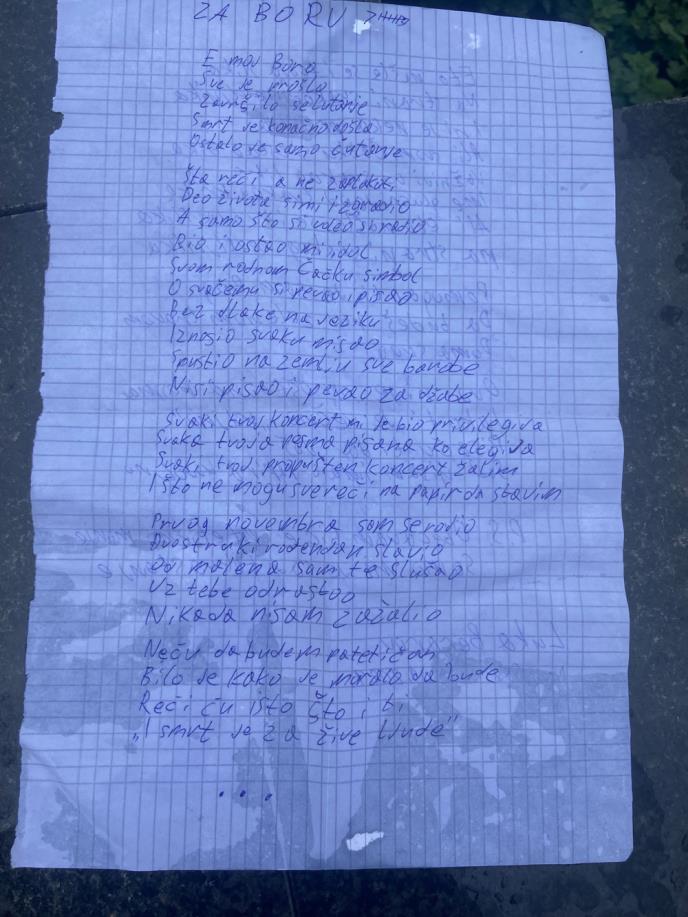 ZA BORU
E moj Boro
Sve je prošlo
Završilo se lutanje
Smrt je konačno došla
Ostalo je samo ćutanje
Šta reći a ne zaplakati
Deo života si mi izgradio
A samo što si voleo si radio
Bio i ostao mi idol
Svom rodnom Čačku simbol
O svačemu si pevao i pisao
Bez dlake na jeziku
Iznosio svaku misao
Spustio na zemlju sve barabe
Nisi pisao i pevao za džabe
Svaki tvoj koncert mi je bio privilegija
Svaka tvoja pesma pisana ko elegija
Svaki tvoj propušten koncert žalim
I što ne mogu sve reći na papir da stavim
Prvog novembra sam se rodio
Dvostruki rođendan slavio
Od malena sam te slušao
Uz tebe odrastao
Nikada nisam zažalio
Neću da budem patetičan
Bilo je kako je moralo da bude
Reći ću isto što i ti
„I smrt je za žive ljude"
...